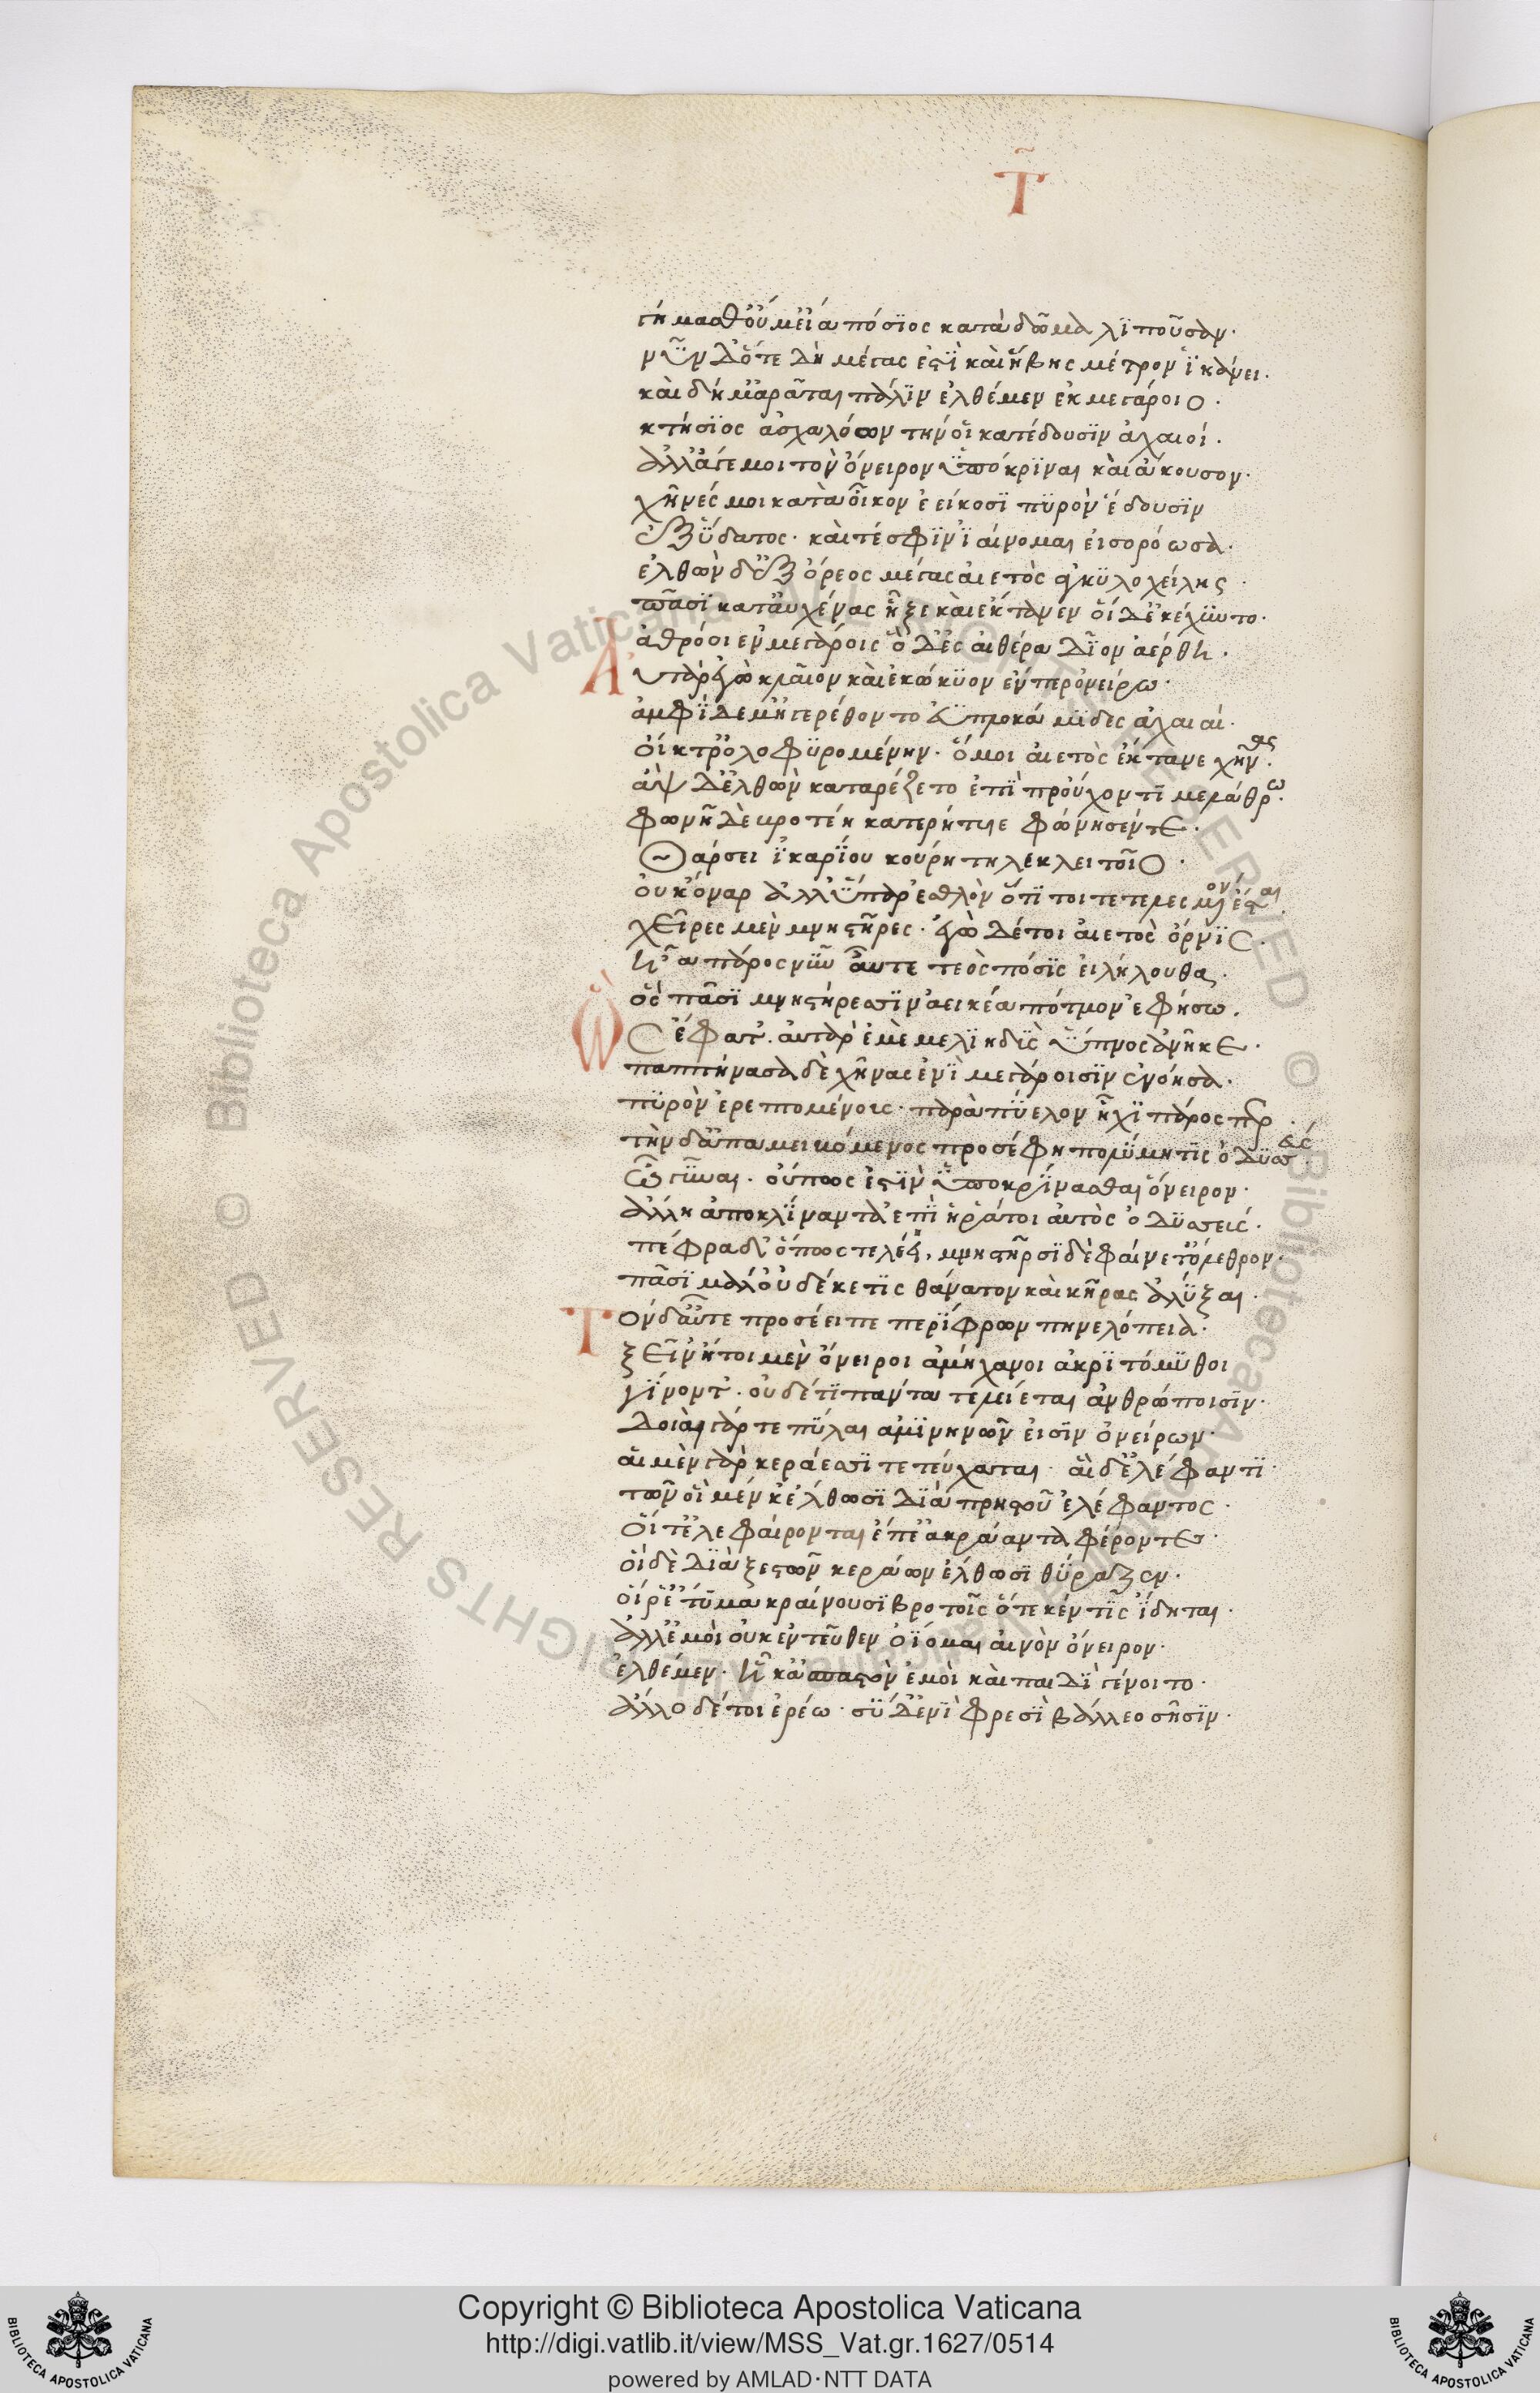 Τ
γήμασθ' οὔ μ' εἴα πόσιος κατὰ δῶμα λιποῦσαν·
νῦν δ' ὅτε δὴ μέγας ἐστὶ καὶ ἥβης μέτρον ἱκάνει·
καὶ δή μ' ἀρᾶται πάλιν ἐλθέμεν ἐκ μεγάροιο·
κτήσιος ἀσχαλόων τήν οἱ κατέδουσιν ἀχαιοί·
ἀλλ' ἄγε μοι τὸν ὄνειρον ὑπόκριναι καὶ ἄκουσον·
χῆνές μοι κατὰ οἶκον ἐείκοσι πυρὸν ἔδουσιν
ἐξ ὕδατος· καί τέ σφιν ἰαίνομαι εἰσορόωσα·
ἐλθὼν δ' ἐξ ὄρεος μέγας αἰετὸς ἀγκυλοχείλης·
πᾶσι κατ' αὐχένας ἦξε καὶ ἔκτανεν οἱ δ' ἐκέχυντο·
ἀθρόοι ἐν μεγάροις ὁ δ' ἐς αἰθέρα δῖον ἀέρθη·
Αὐτὰρ ἐγὼ κλαῖον καὶ ἐκώκυον ἔν περ ὀνείρω·
ἀμφὶ δέ μ' ἠγερέθοντο ἐϋπλοκαμίδες ἀχαιαί·
οἴκτρ' ὀλοφυρομένην· ὅ μοι αἰετὸς ἔκτανε χῆνας·
ἂψ δ' ἐλθὼν κατ' ἄρ' ἕζετο ἐπὶ προύχοντι μελάθρω·
φωνῆ δὲ βροτέη κατερήτυε φώνησέν τε·
Θάρσει ἰκαρίου κούρη τηλεκλειτοῖο·
οὐκ ὄναρ ἀλλ' ὕπαρ ἐσθλὸν ὅ τι τοι τετελεσμένον ἔσται·
χεῖρες μὲν μνηστῆρες· ἐγὼ δέ τοι αἰετὸς ὄρνις·
ἦα πάρος νῦν αὖτε τεὸς πόσις εἰλήλουθα·
ὃς πᾶσι μνηστήρεσσιν ἀεικέα πότμον ἐφήσω·
Ὣς ἔφατ'· αὐτὰρ ἐμὲ μελιηδὺς ὕπνος ἀνῆκε·
παπτήνασα δὲ χῆνας ἐνὶ μεγάροισιν ἐνόησα·
πυρὸν ἐρεπτομένους· παρὰ πύελον ἧχι πάρος περ
τὴν δ' ἀπαμειβόμενος προσέφη πολύμητις ὀδυσσεύς
ὦ γύναι· οὔπως ἐστὶν ὑποκρίνασθαι ὄνειρον·
ἄλλη ἀποκλίναντα ἐπὶ ἦ ῥά τοι αὐτὸς ὀδυσσεύς·
πέφραδ' ὅπως τελέει, μνηστῆρσι δὲ φαίνετ' ὄλεθρον·
πᾶσι μάλ' οὐδέ κέ τις θάνατον καὶ κῆρας ἀλύξαι·
Τὸν δ' αὖτε προσέειπε περίφρων πηνελόπεια·
ξεῖν' ἤτοι μὲν ὄνειροι ἀμήχανοι ἀκριτόμυθοι
γίνοντ'· οὐδέ τι πάντα τελείεται ἀνθρώποισιν·
δοιαὶ γάρ τε πύλαι ἀμενηνῶν εἰσιν ὀνείρων·
αἱ μὲν γὰρ κεράεσσι τετεύχαται· αἱ δ' ἐλέφαντι·
τῶν οἳ μέν κ' ἔλθωσι διὰ πριστοῦ ἐλέφαντος·
οἵ τ' ἐλεφαίρονται ἔπε' ἀκράαντα φέροντες·
οἳ δὲ διὰ ξεστῶν κεράων ἔλθωσι θύραζεν·
οἵ ῥ' ἔτυμα κραίνουσι βροτοῖς ὅτε κέν τις ἴδηται·
ἀλλ' ἐμοὶ οὐκ ἐντεῦθεν ὀΐομαι αἰνὸν ὄνειρον·
ἐλθέμεν· ἦ κ' ἀσπαστὸν ἐμοὶ καὶ παιδὶ γένοιτο·
ἄλλο δέ τοι ἐρέω· σὺ δ' ἐνὶ φρεσὶ βάλλεο σῆσιν·
© Biblioteca Apostolica Vaticana ALL RIGHTS RESERVED © Biblioteca Apostolica Vaticana ALL RIGHTS RESERVED
BIBLIOTECA APOSTOLICA VATICANA
Copyright © Biblioteca Apostolica Vaticana
http://digi.vatlib.it/view/MSS_Vat.gr.1627/0514
powered by AMLAD·NTT DATA
BIBLIOTECA APOSTOLICA VATICANA